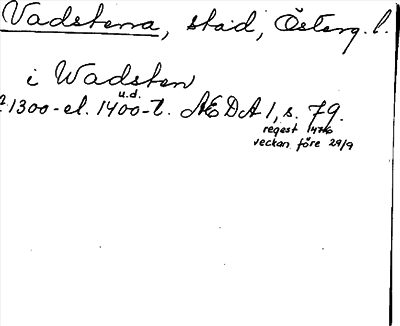 Vadstena, stad, Österg. l.
i Wadsten
u.d.
? 1300-el. 1400-t. ÆDA 1, s. 79.
regest 1476
veckan före 29/9